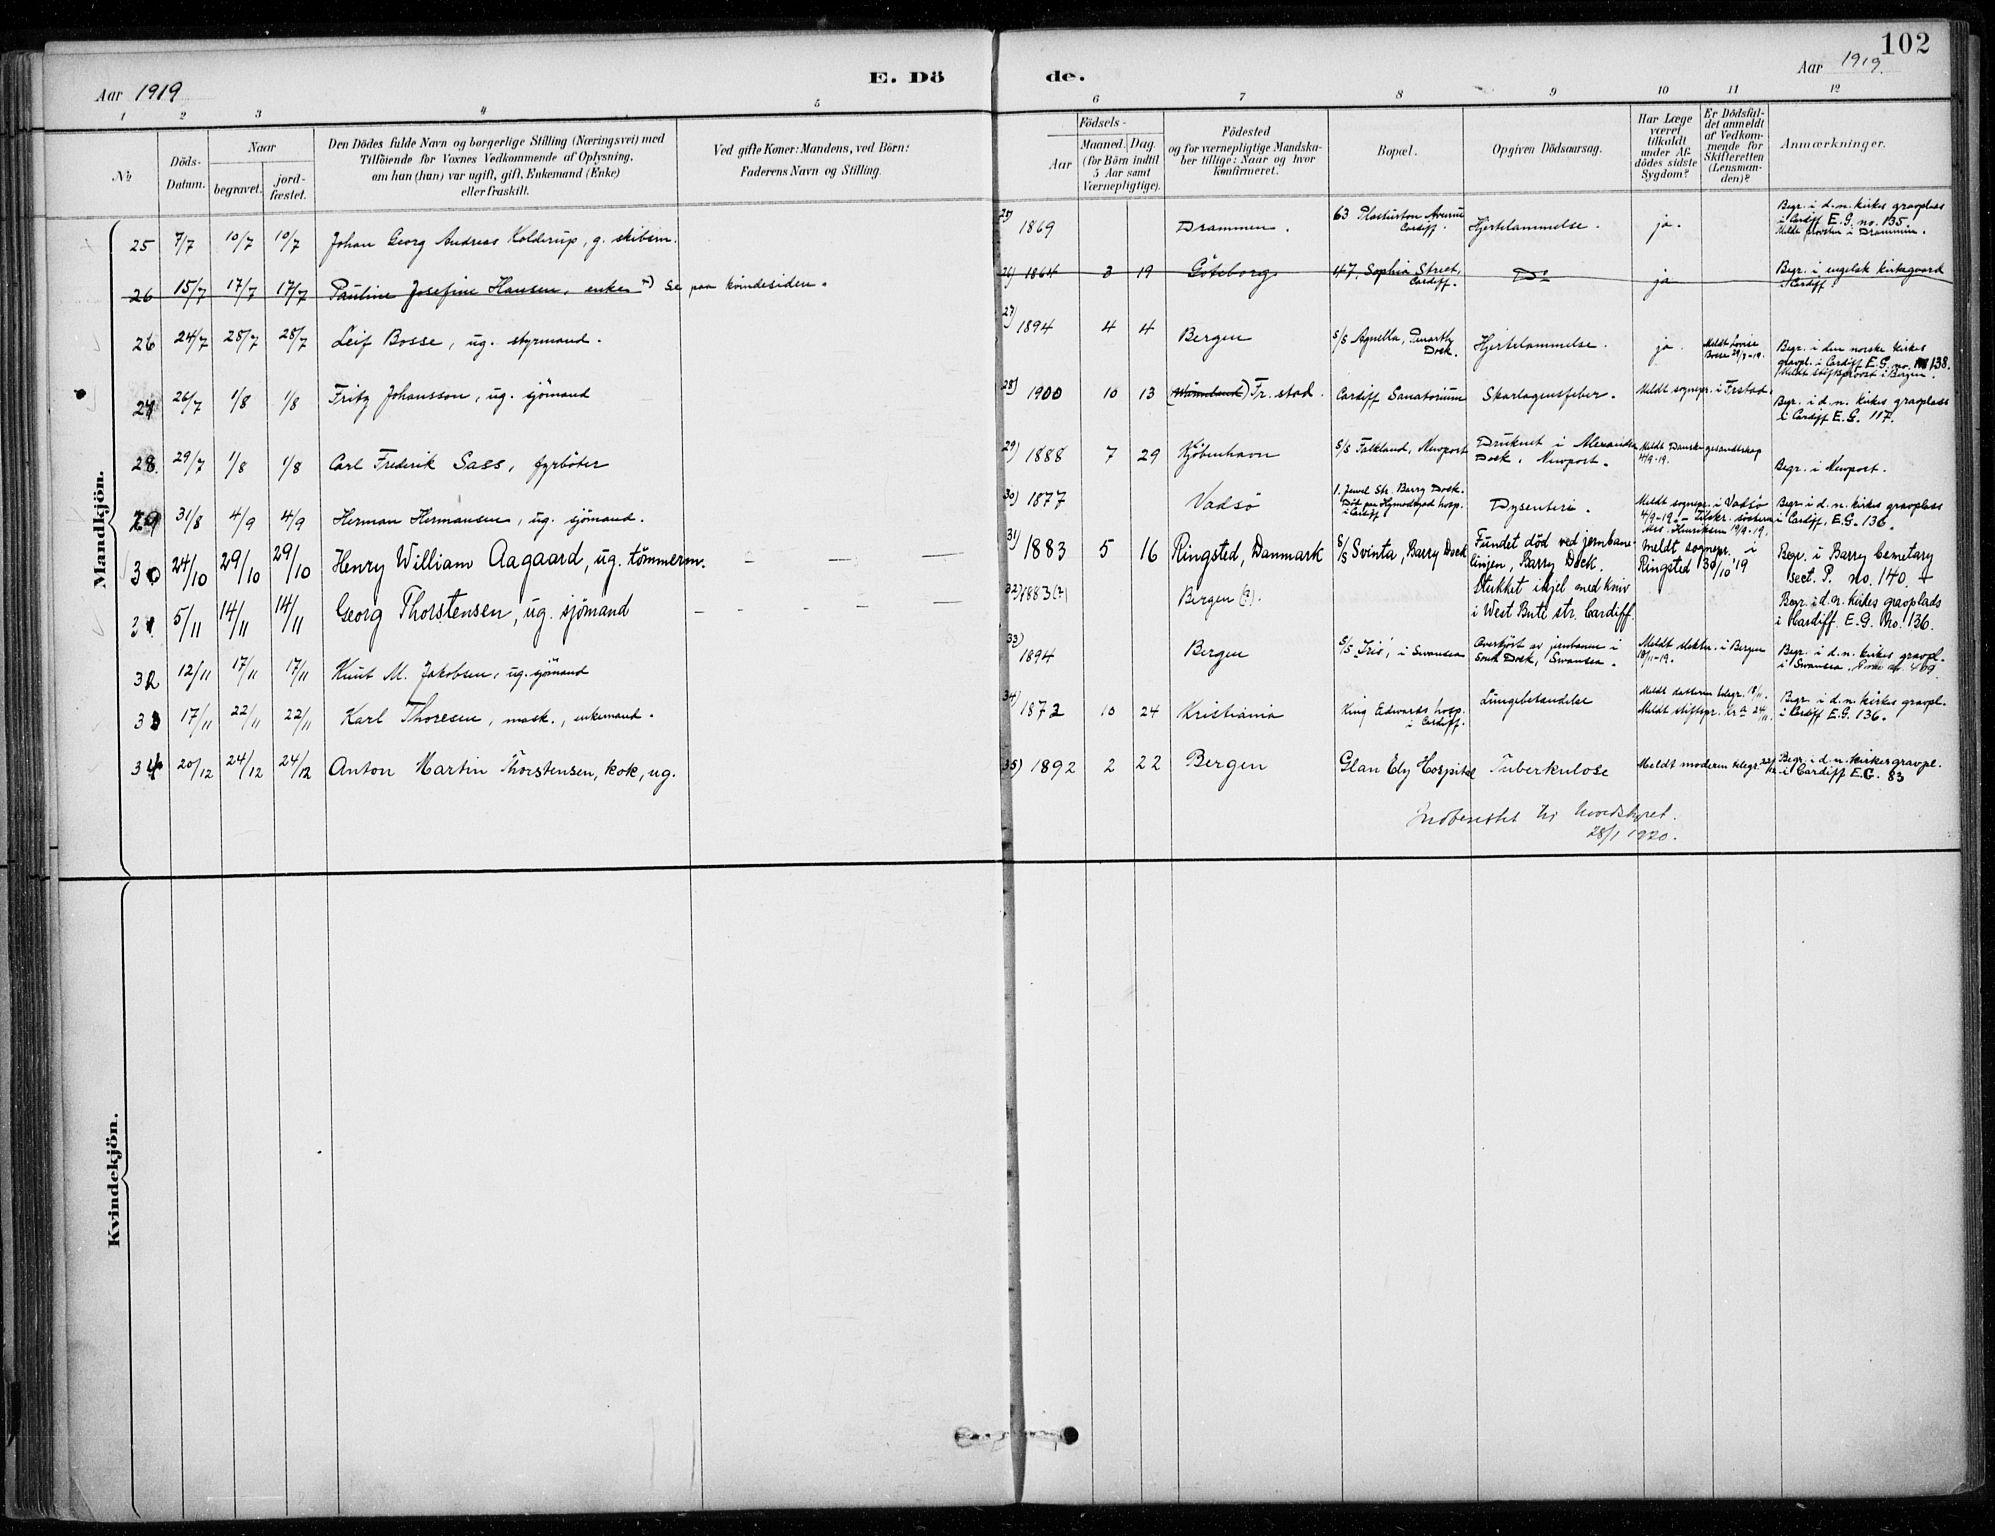 102
Aar 1919
E. Dö
de.
Aar 1919.
1 2 3 4 5 6 7 8 9 10 11 12
No
Döds-
Datum.
Naar
begravet.
jord-
fæstet.
Den Dödes fulde Navn og borgerlige Stilling (Næringsvei) med
Tilföiende for Voxnes Vedkommende af Oplysning,
om han (hun) var ugift, gift, Enkemand (Enke)
eller fraskilt.
Ved gifte Koner: Mandens, ved Börn:
Faderens Navn og Stilling.
Födsels-
Aar
Maaned. Dag.
(for Börn indtil
5 Aar samt
Værnepligtige).
Födested
og for værnepligtige Mandska-
ber tillige: Naar og hvor
konfirmeret.
Bopæl.
Opgiven Dödsaarsag.
Har Læge
været
tilkaldt
under Af-
dödes sidste
Sygdom?
Er Dödsfal-
det anmeldt
af Vedkom-
mende for
Skifteretten
(Lensman-
den)?
Anmærkninger.
Mandkjön.
25 7/7 10/7 10/7 Johan Georg Andreas Kolderup, g. skibsm.
1869 Drammen. 63 Avenue Cardiff. Hjertelammelse. ja.
Begr. i d. n. kirkes gravplass
i Cardiff E.G. no. 135
i Drammen.
26 15/7 17/7 17/7 Pauline Josefine Hansen, enke se paa kvindesiden.
26) 1864 3 19 Göteborg 47, Sophia Street, Cardiff. Do ja
Begr. i engelsk kirkegaard
i Cardiff.
26 24/7 28/7 28/7 Leif Bosse, ug. styrmand.
27) 1894 4 4 Bergen S/S Agnella, Penarth Dock. Hjertelammelse. ja.
Begr. i den norske kirkes
gravpl. i Cardiff E.G. no. 138.
Meldt stiftsprovst i Bergen.
27 26/7 1/8 1/8 Fritz Johansson, ug. sjömand
28) 1900 10 13 Fr. stad. Cardiff Sanatorium Skarlagensfeber. Meldt sognepr. i Frstad.
Begr. i d. n. kirkes gravplass
i Cardiff E.G. 117.
28. 29/7 1/8 1/8 Carl Frederik Sass, fyrböter
29) 1888 7 29 Kjöbenhavn S/S Falkland, Newport Druknet i Alexandra
Dock, Newport. Meldt Danske gesandtskap
4/9-19. Begr. i Newport.
29 31/8 4/9 4/9 Herman Hermansen, ug. sjömand.
30) 1877 Vadsö 1. Jewel Str. Barry Dock.
i Cardiff Dysenteri. Meldt sognepr. i Vadsö
4/9-19. Mrs. Henriksen 19/9-19.
Begr. i d. n. kirkes gravplass
i Cardiff, E.G. 136.
30 24/10 29/10 29/10 Henry William Aagaard, ug. tömmerm.
31) 1883 5 16 Ringsted, Danmark S/S Svinta, Barry Dock Fundet död ved jernbane-
linjen, Barry Dock. Meldt sognepr. i
Ringsted 30/10 19
Begr. i Barry Cemetary
sect. P. no. 140.
31. 5/11 14/11 14/11 Georg Thorstensen, ug. sjömand
32) 1883(?) Bergen (?). Stukket ihjel med kniv
i West Bute str. Cardiff.
Begr. i d. n. kirkes gravplads
i Cardiff. E.G. No. 136.
32 12/11 17/11 17/11 Knut M. Jakobsen, ug. sjömand
33) 1894 Bergen S/S Iris, i Swansea Overkjört av jernbanen i
South Dock, Swansea. Meldt i Bergen
18/11-19. Begr. i d. n. kirkes gravpl.
i Swansea.
33 17/11 22/11 22/11 Karl Thoresen, mask., enkemand.
34) 1872 10 24 Kristiania King Edwards hosp.
i Cardiff. Lungebetændelse Meldt datteren telegr. 18/11.
Begr. i d. n. kirkes gravpl.
i Cardiff E.G. 136.
34 20/12 24/12 24/12 Anton Martin Thorstensen, kok, ug.
35) 1892 2 22 Bergen Glan Ely Hospital Tuberkulose Meldt moderen telegr. 22/12
Begr. i d. n. kirkes gravpl.
i Cardiff E.G. 83
Indberettet til hovedstyret.
28/1 1920.
Kvindekjön.